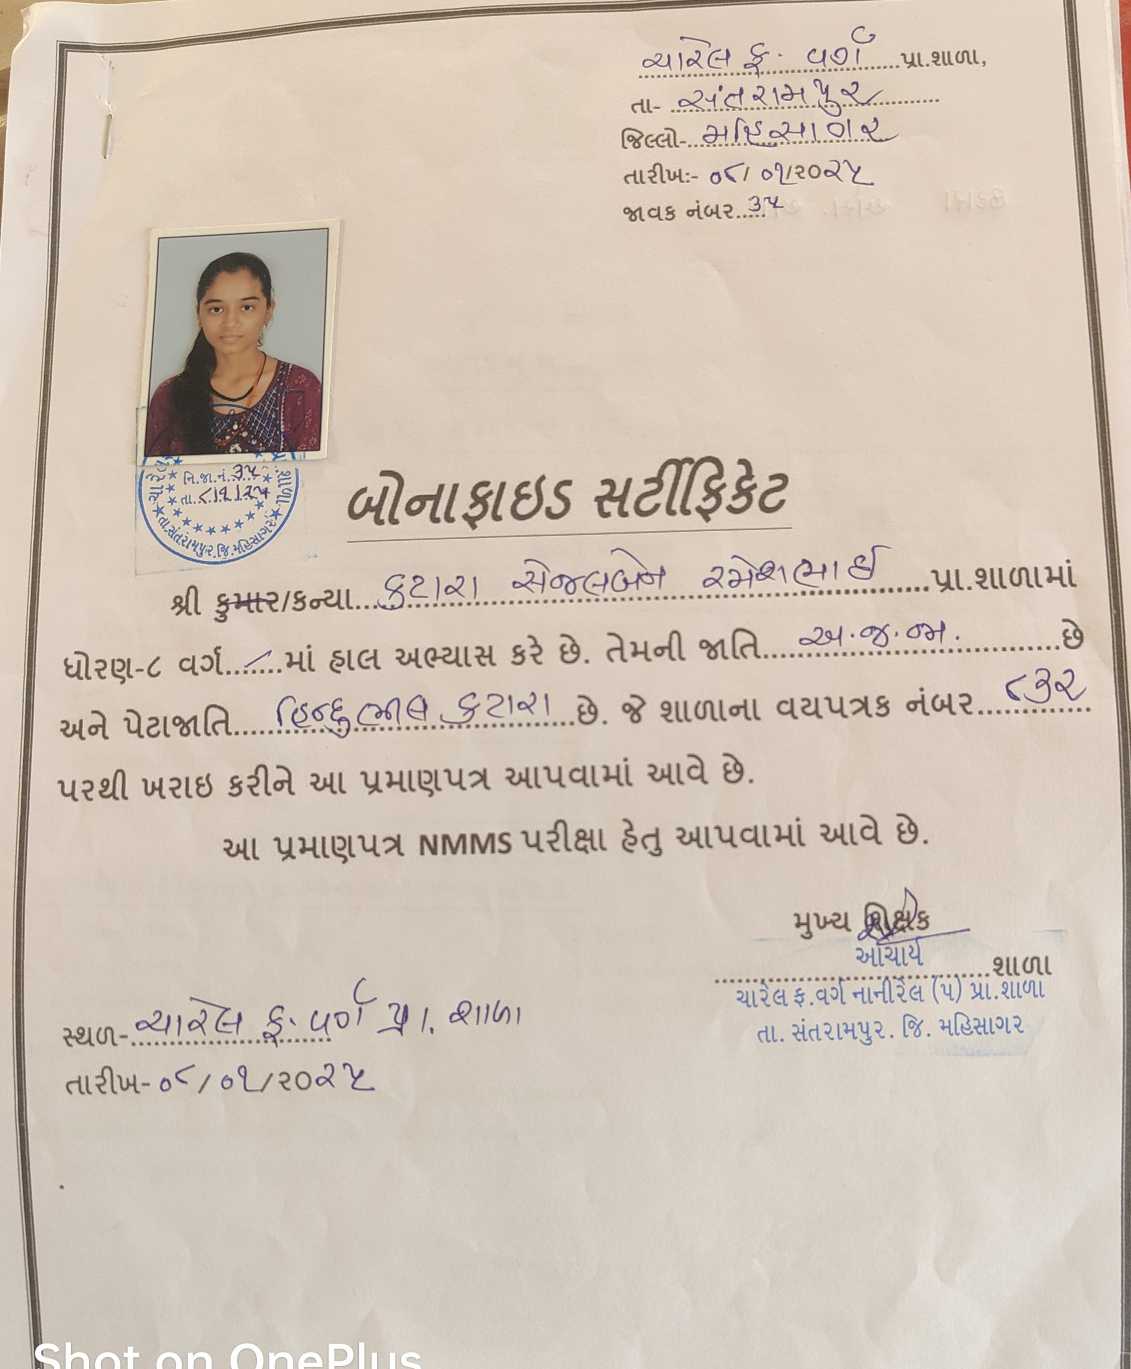 ચારેલ ફ. વર્ગ પ્રા.શાળા,
તા- સંતરામપુર
જિલ્લો- મહિસાગર
તારીખ:- ૦૮/ ૦૧/૨૦૨૫
જાવક નંબર.. ૩૫
નિ.જા.નં. ૩૫
તા. ૮/૧/૨૫
તા.સંતરામપુર.જિ.મહિસાગર
બોનાફાઇડ સર્ટીફિકેટ
શ્રી કુમાર/કન્યા... કટારા સેજલબેન રમેશભાઈ ...પ્રા.શાળામાં
ધોરણ-૮ વર્ગ...–...માં હાલ અભ્યાસ કરે છે. તેમની જાતિ... અ.જ.જા. ...છે
અને પેટાજાતિ... હિન્દુ ભીલ કટારા ...છે. જે શાળાના વયપત્રક નંબર... ૮૩૨
પરથી ખરાઇ કરીને આ પ્રમાણપત્ર આપવામાં આવે છે.
આ પ્રમાણપત્ર NMMS પરીક્ષા હેતુ આપવામાં આવે છે.
મુખ્ય શિક્ષક
આચાર્ય
...શાળા
ચારેલ ફ.વર્ગ નાનીરેલ (૫) પ્રા.શાળા
તા. સંતરામપુર. જિ. મહિસાગર
સ્થળ- ચારેલ ફ. વર્ગ પ્રા. શાળા
તારીખ- ૦૮/૦૧/૨૦૨૫
Shot on OnePlus